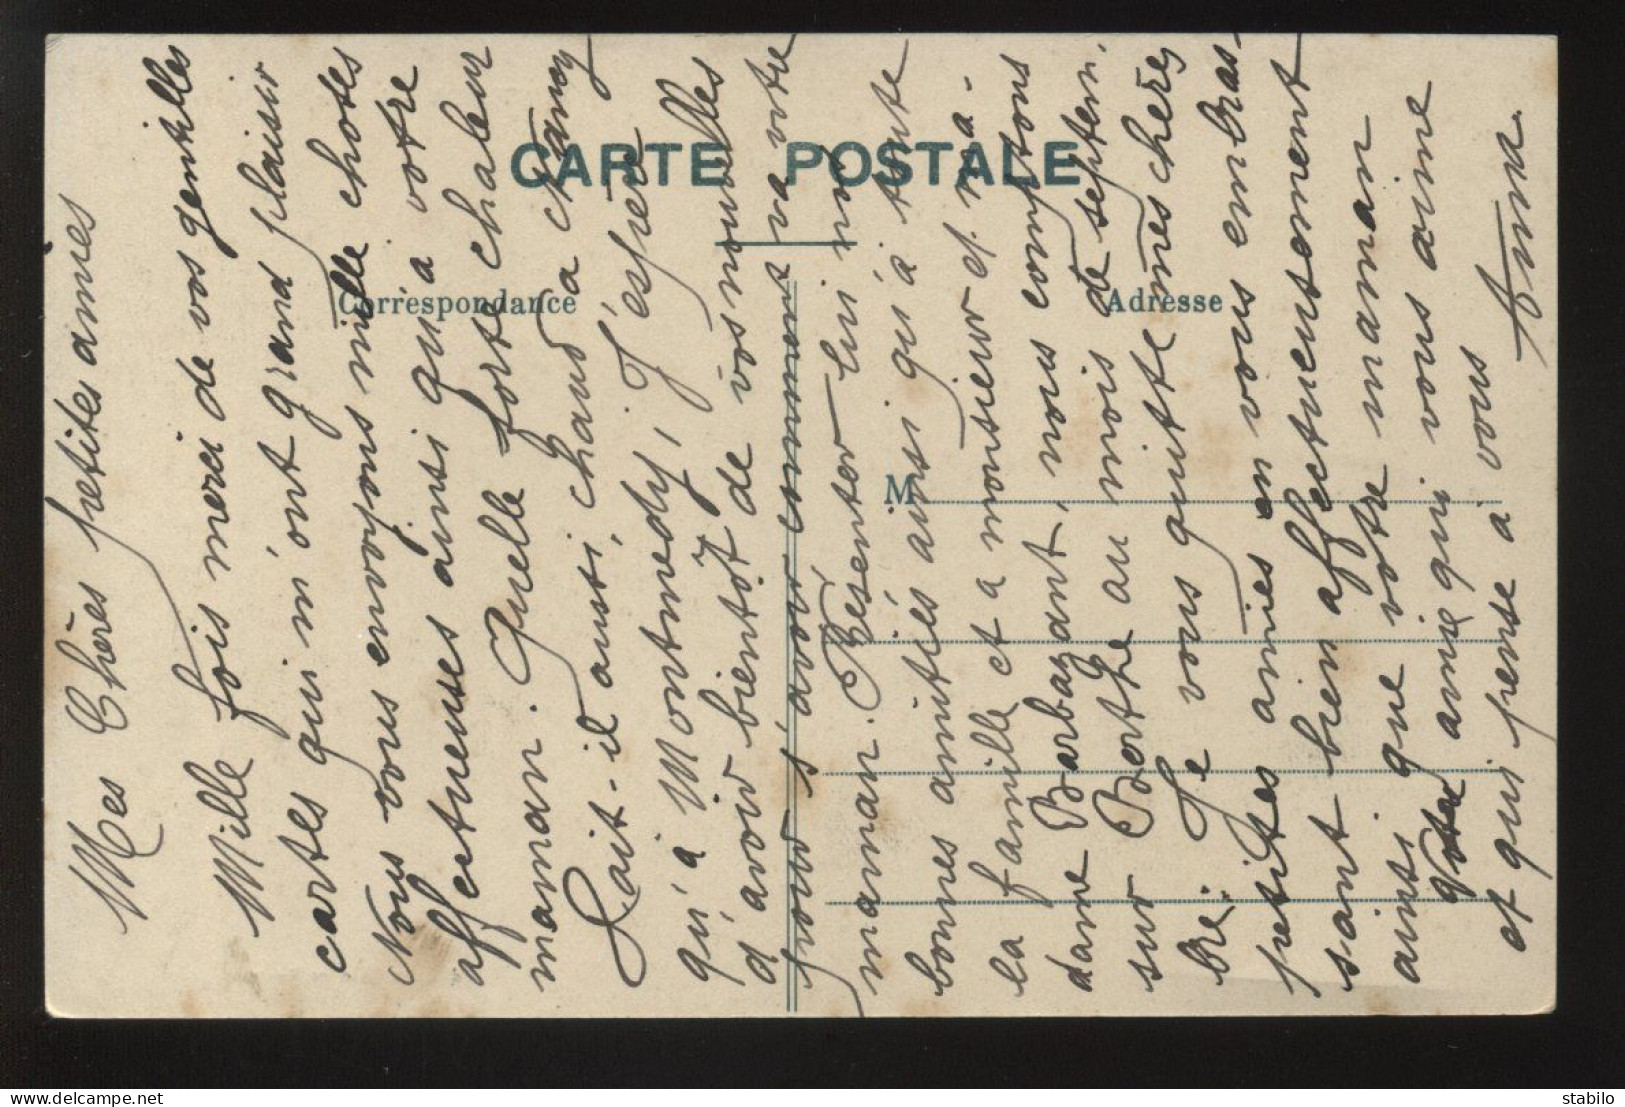 CARTE POSTALE
Correspondance
Adresse
M
Mes Chères petites amies
Mille fois merci de vos gentilles
cartes qui m'ont grand plaisir
Nous vous envoyons mille choses
affectueuses ainsi qu'a votre
maman. Quelle forte chaleur
Fait-il aussi chaud a Chancy
qu'à Montmedy, J'espère
d'avoir bientôt de vos nouvelles
pour s'avoir comment va votre
maman. Présenter lui mes
bonnes amitiés aussi qu'à toute
la famille et a monsieur et ma-
dame Barbazant, nous comptons
sur Berthe au mois de septem-
bre. Je vous quitte mes chères
petites amies en vous embras-
sant bien affectueusement
ainsi que votre maman
Votre amie qui vous aime
et qui pense à vous
Anna.
stabilo